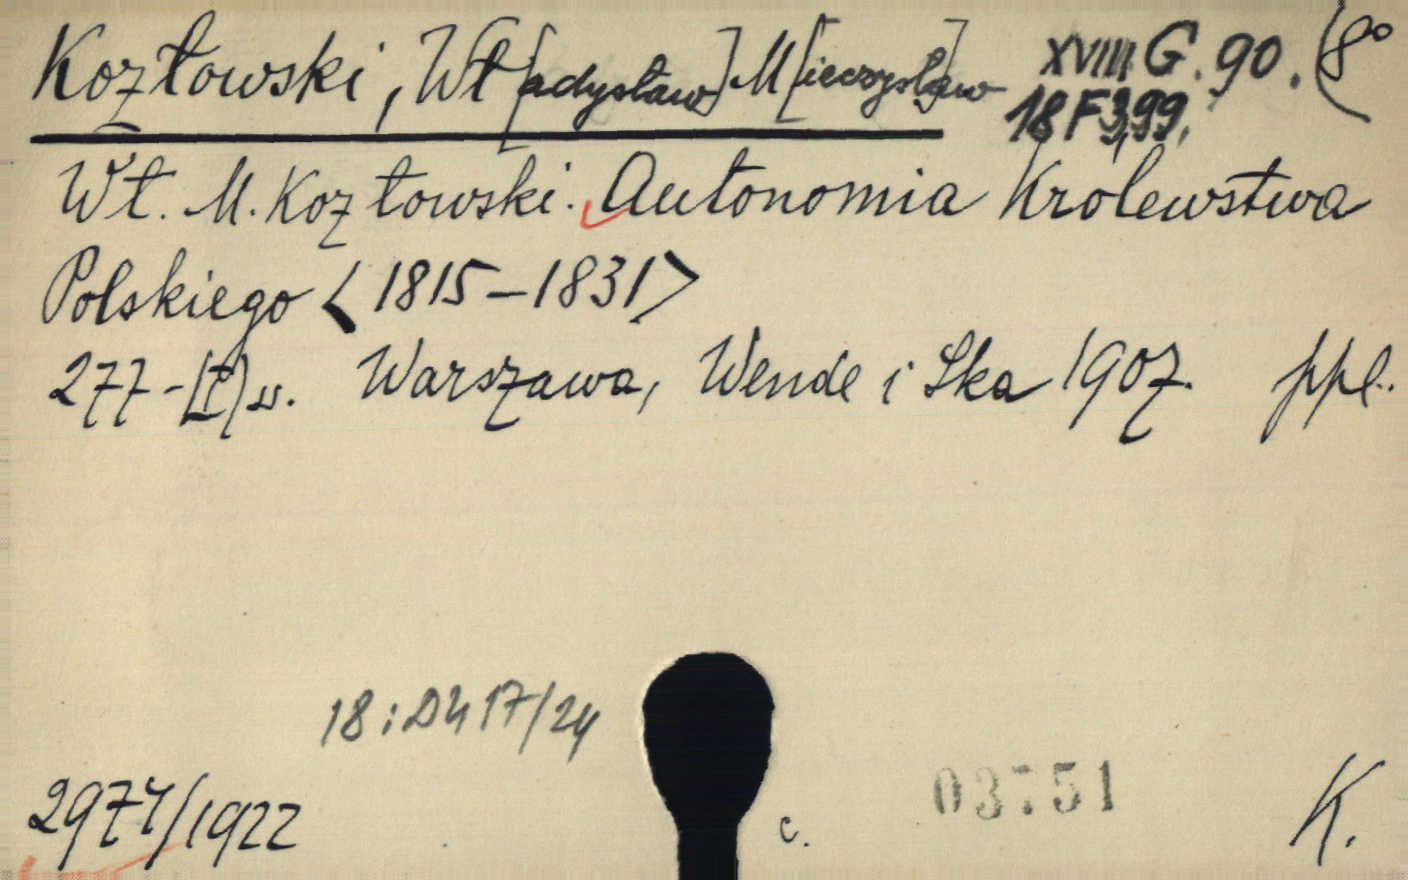 Kozłowski, Wł[adysław] M[ieczysław] XVIII G. 90. (8°
18 F 3,99.
Wł. M. Kozłowski. Autonomia Krolewstwa
Polskiego <1815-1831>
277-[1] s. Warszawa, Wende i Ska 1907. ppl.
18: D 4 17/24
2974/1922
c.
03751
K.